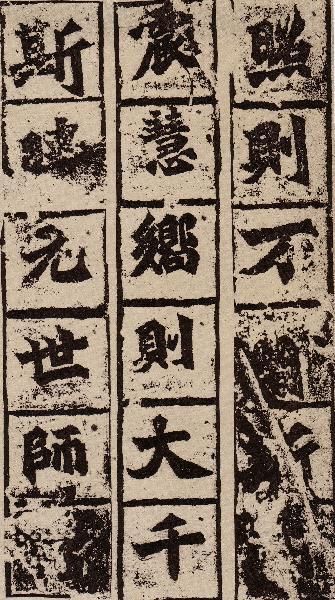 照則不斯
震慧嚮則大千
斯元世師